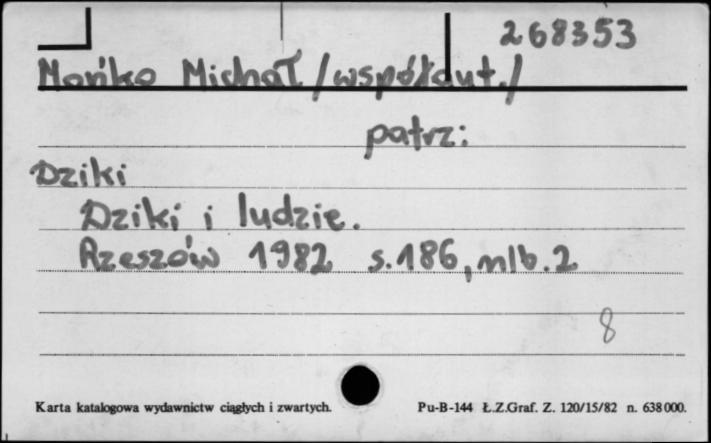 268353
Mońko Michał /współaut./
patrz:
Dziki
Dziki i ludzie.
Rzeszów 1982 s.186, nlb.2
8
Karta katalogowa wydawnictw ciągłych i zwartych. Pu-B-144 Ł.Z.Graf. Z. 120/15/82 n. 638000.